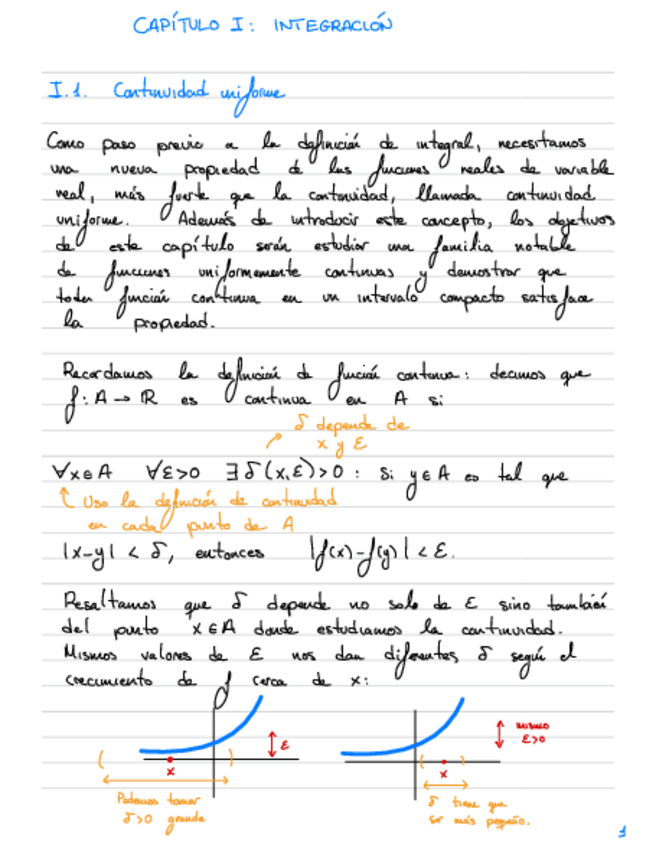 CAPÍTULO I: INTEGRACIÓN
I.1. Continuidad uniforme
Como paso previo a la definición de integral, necesitamos
una nueva propiedad de las funciones reales de variable
real, más fuerte que la continuidad, llamada continuidad
uniforme. Además de introducir este concepto, los objetivos
de este capítulo serán estudiar una familia notable
de funciones uniformemente continuas y demostrar que
toda función continua en un intervalo compacto satisface
la propiedad.
Recordamos la definición de función continua: decimos que
f: A → ℝ es continua en A si
δ depende de
x y ε
∀x∈A ∀ε>0 ∃δ(x,ε)>0 : si y∈A es tal que
↑ Uso la definición de continuidad
en cada punto de A
|x-y| < δ, entonces |f(x)-f(y)| < ε.
Resaltamos que δ depende no solo de ε sino también
del punto x∈A donde estudiamos la continuidad.
Mismos valores de ε nos dan diferentes δ según el
crecimiento de f cerca de x:
ε
x
Podemos tomar
δ>0 grande
mismo
ε>0
x
δ tiene que
ser más pequeño.
1